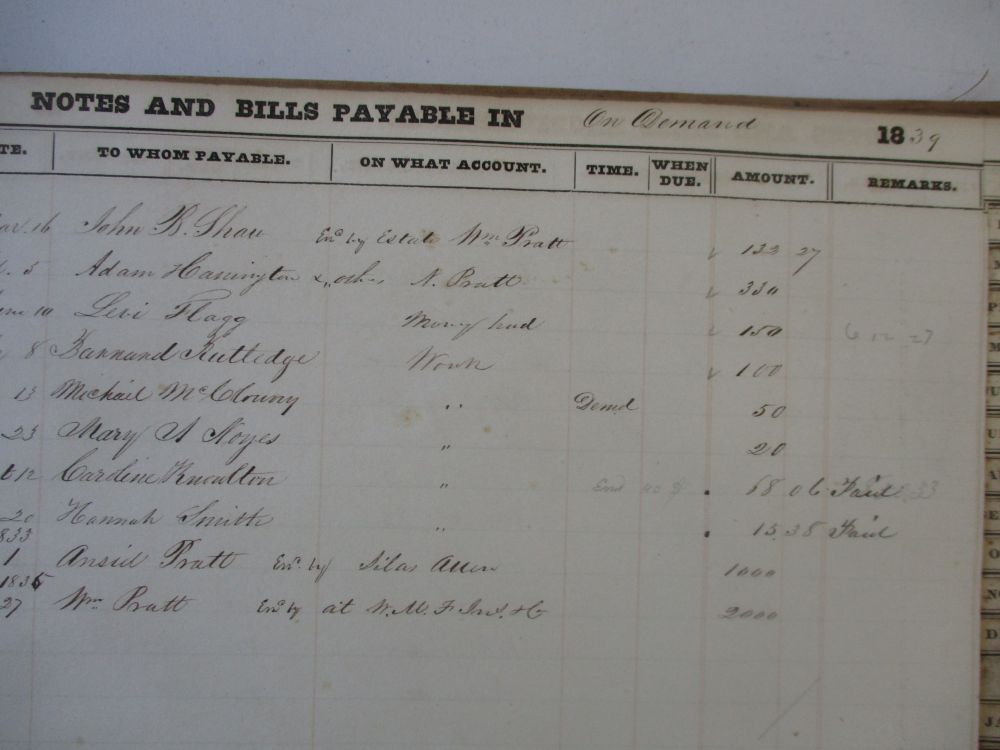 NOTES AND BILLS PAYABLE IN On Demand 1839
TE. TO WHOM PAYABLE. ON WHAT ACCOUNT. TIME. WHEN DUE. AMOUNT. REMARKS.
ar. 16 John B. Shaw End by Estate Wm Pratt 132 27
5 Adam Hanington N. Pratt 330
une 10 Levi Flagg Money had 150
8 Barnard Rutledge Work 100
13 Michael McClouny " Demd 50
23 Mary A Noyes " 20
t 12 Caroline Knoulton " 68 06 Paid
20 Hannah Smith " 15.38 Paid
833
1 Ansil Pratt End by Silas Allen 1000
1835
27 Wm Pratt End by at W. M. F. Ins. & Co 2000